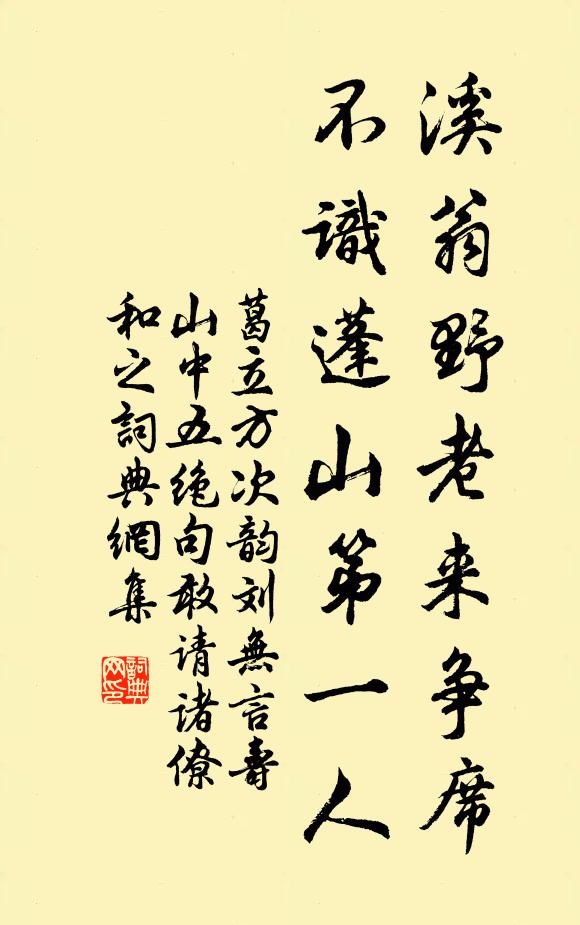 溪翁野老来争席
不識蓬山第一人
葛立方次韵刘無言壽
山中五绝句敢请诸僚
和之詞典網集
詞典
网印